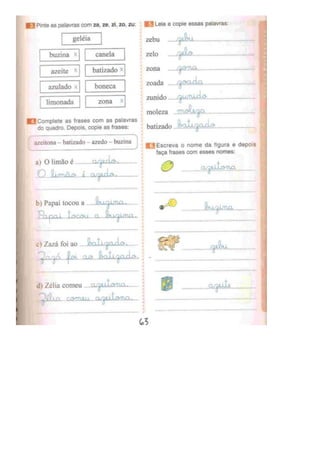 3 Pinte as palavras com za, ze, zi, zo, zu:
geléia
buzina x canela
azeite x batizado x
azulado x boneca
limonada zona x
4 Complete as frases com as palavras
do quadro. Depois, copie as frases:
azeitona – batizado – azedo – buzina
a) O limão é azedo.
O limão é azedo.
b) Papai tocou a buzina.
Papai tocou a buzina.
c) Zazá foi ao batizado.
Zazá foi ao batizado.
d) Zélia comeu azeitona.
Zélia comeu azeitona.
5 Leia e copie essas palavras:
zebu zebu
zelo zelo
zona zona
zoada zoada
zunido zunido
moleza moleza
batizado batizado
6 Escreva o nome da figura e depois
faça frases com esses nomes:
azeitona
buzina
zebu
azeite
63